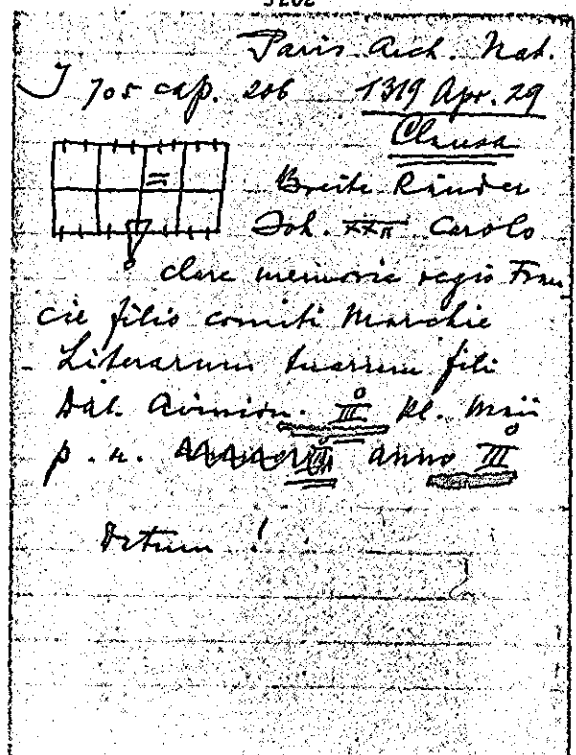 5202
Paris Arch. Nat.
J 705 cap. 206 1319 Apr. 29
Clausa
Breite Ränder
Joh. XXII Carolo
clare memorie regis Fran
cie filio comiti Marchie
Literarum tuarum fili
Dat. Avinion. III° kl. Maii
p. n. anno III°
Datum !